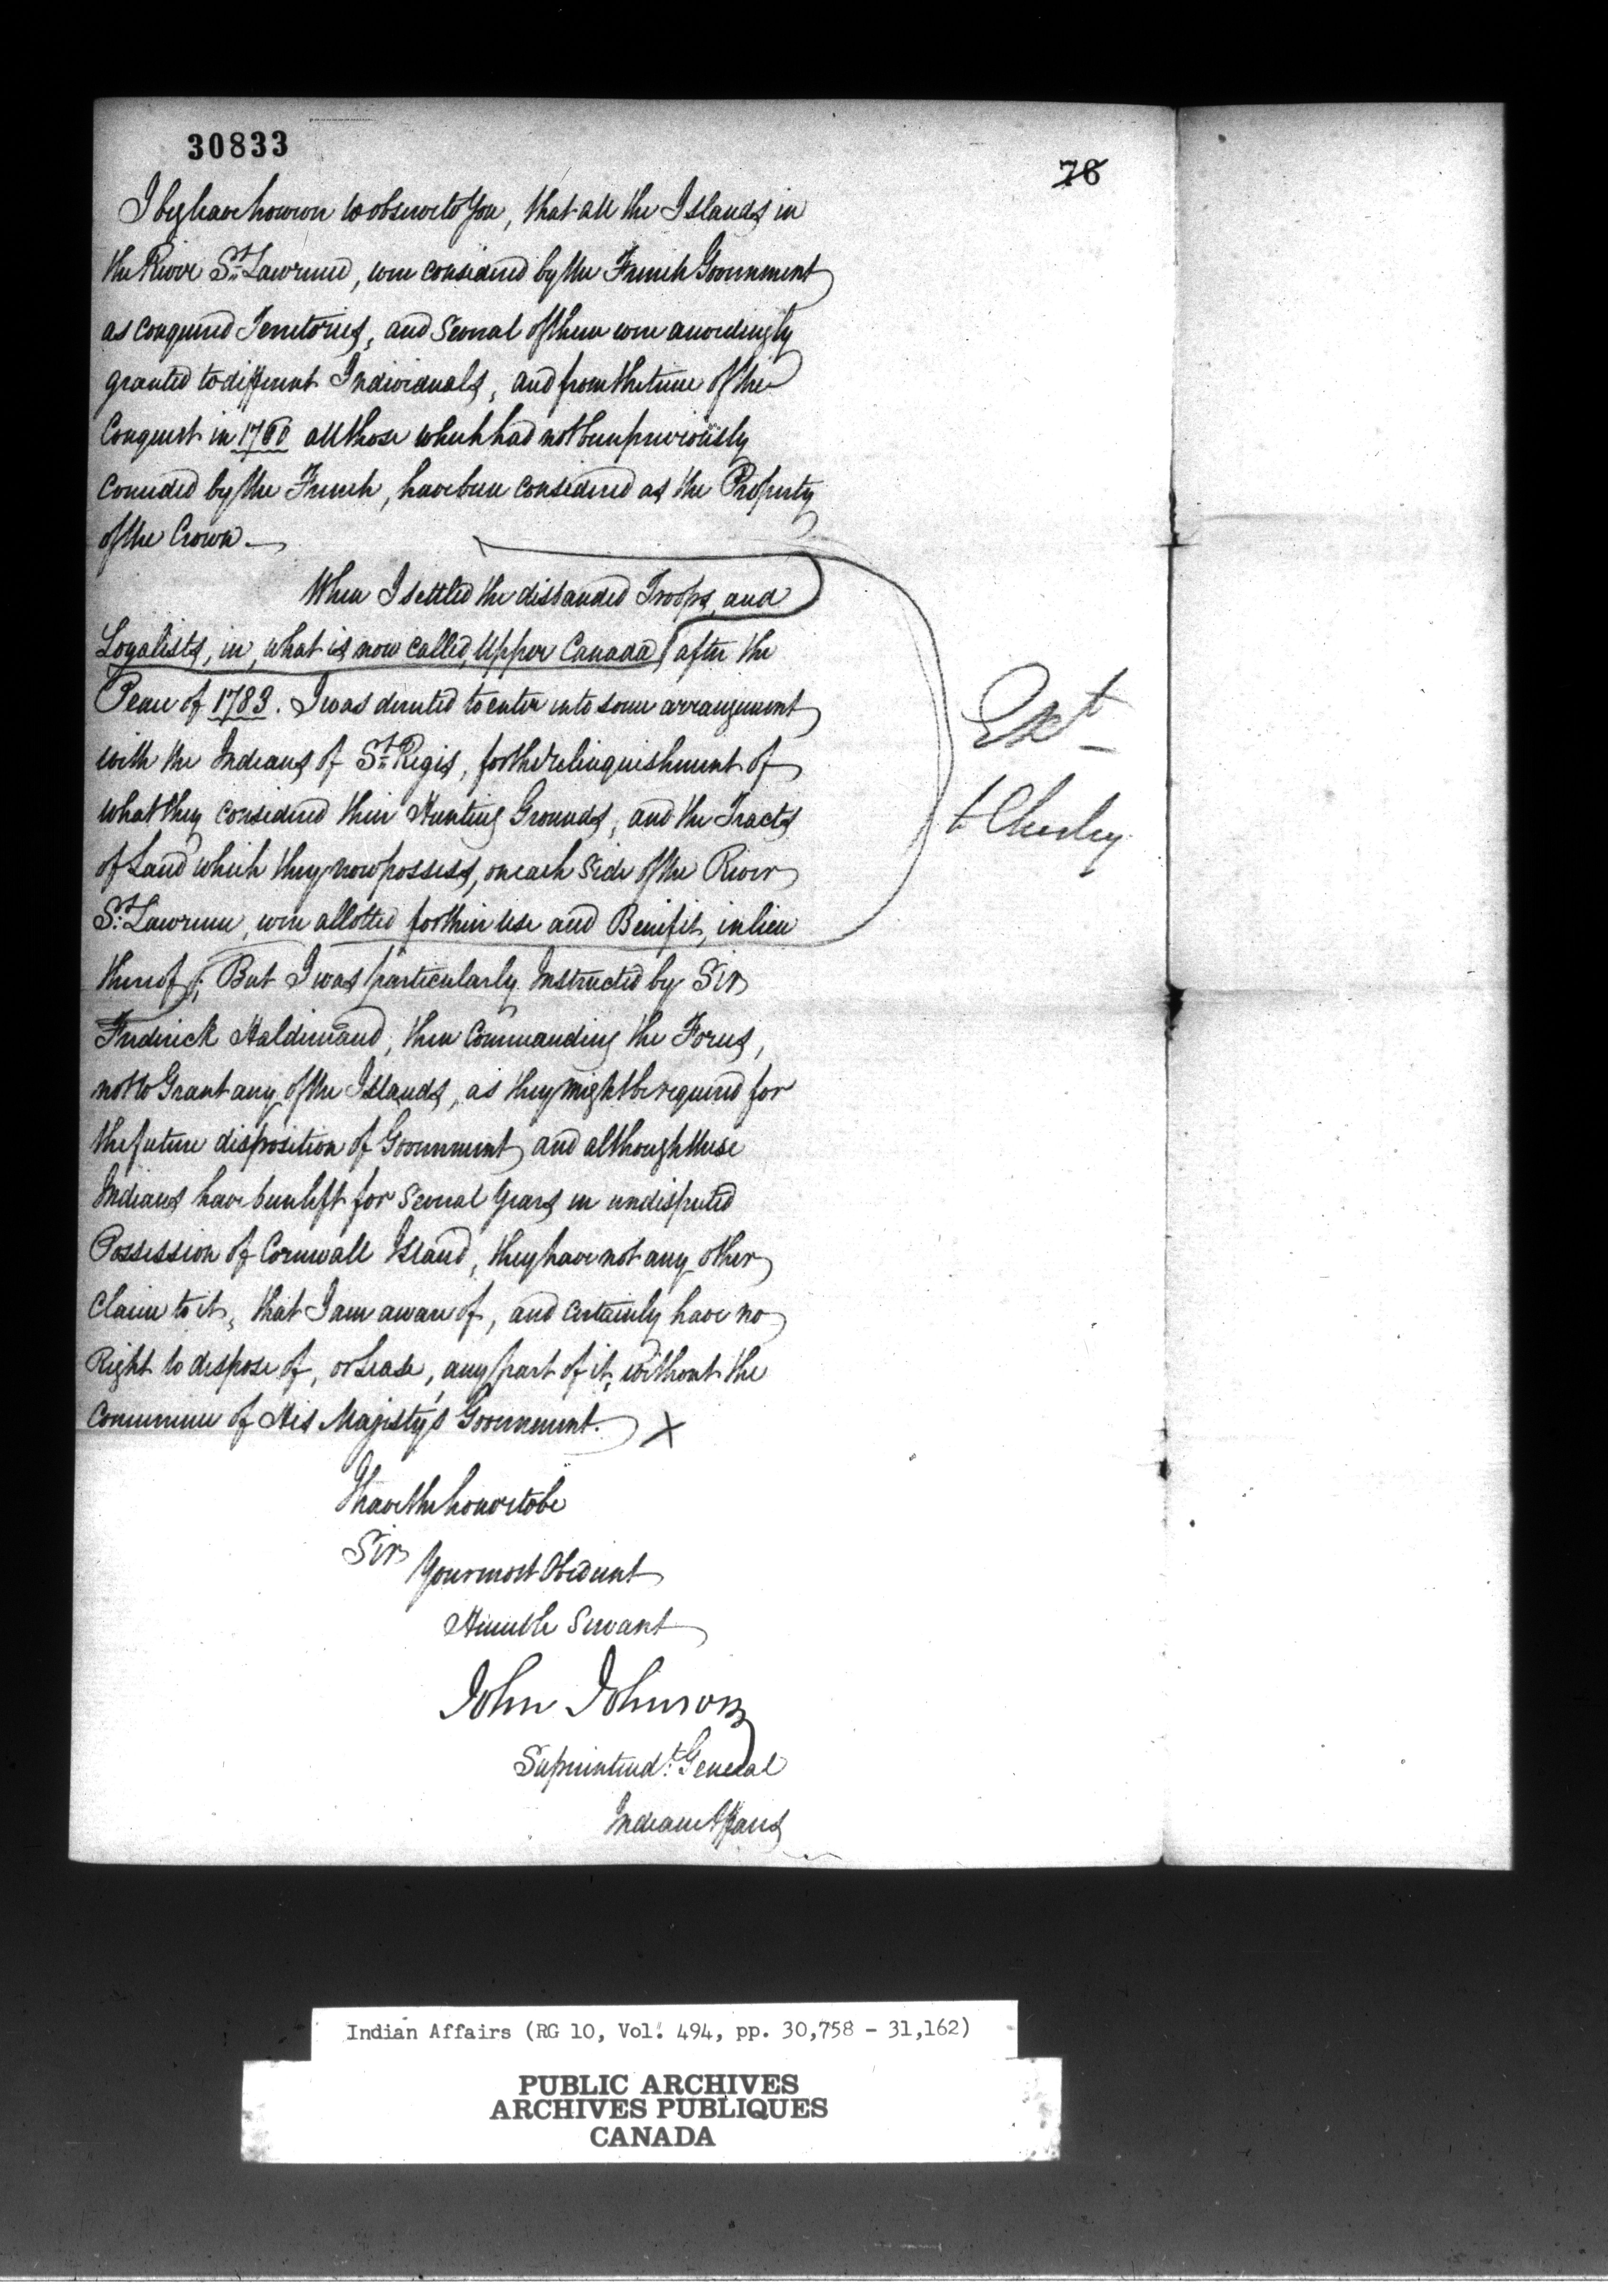 30833
76
I beg leave however to observe to You, that all the Islands in
the River St. Lawrence, were considered by the French Government
as conquered Territories, and several of them were accordingly
granted to different Individuals, and from the time of the
Conquest in 1760 all those which had not been previously
conceded by the French, have been considered as the Property
of the Crown.—
When I settled the disbanded Troops, and
Loyalists, in, what is now called, Upper Canada, after the
Peace of 1783. I was directed to enter into some arrangement
with the Indians of St. Regis, for the relinquishment of
what they considered their Hunting Grounds, and the Tracts
of Land which they now possess, on each Side of the River
St. Lawrence, were allotted for their use and Benifit, in lieu
thereof; But I was particularly Instructed by Sir
Frederick Haldimand, then Commanding the Forces,
not to Grant any of the Islands, as they might be required for
the future disposition of Government, and although these
Indians have been left for several Years in undisputed
Possession of Cornwall Island, they have not any other
Claim to it, that I am aware of, and certainly have no
Right to dispose of, or Lease, any part of it, without the
Concurrence of His Majesty's Government. X
Ext
to Chesley
I have the honor to be
Sir
Your most Obedient
Humble Servant
John Johnson
Superintendt. General
Indian Affairs
Indian Affairs (RG 10, Vol. 494, pp. 30,758 - 31,162)
PUBLIC ARCHIVES
ARCHIVES PUBLIQUES
CANADA